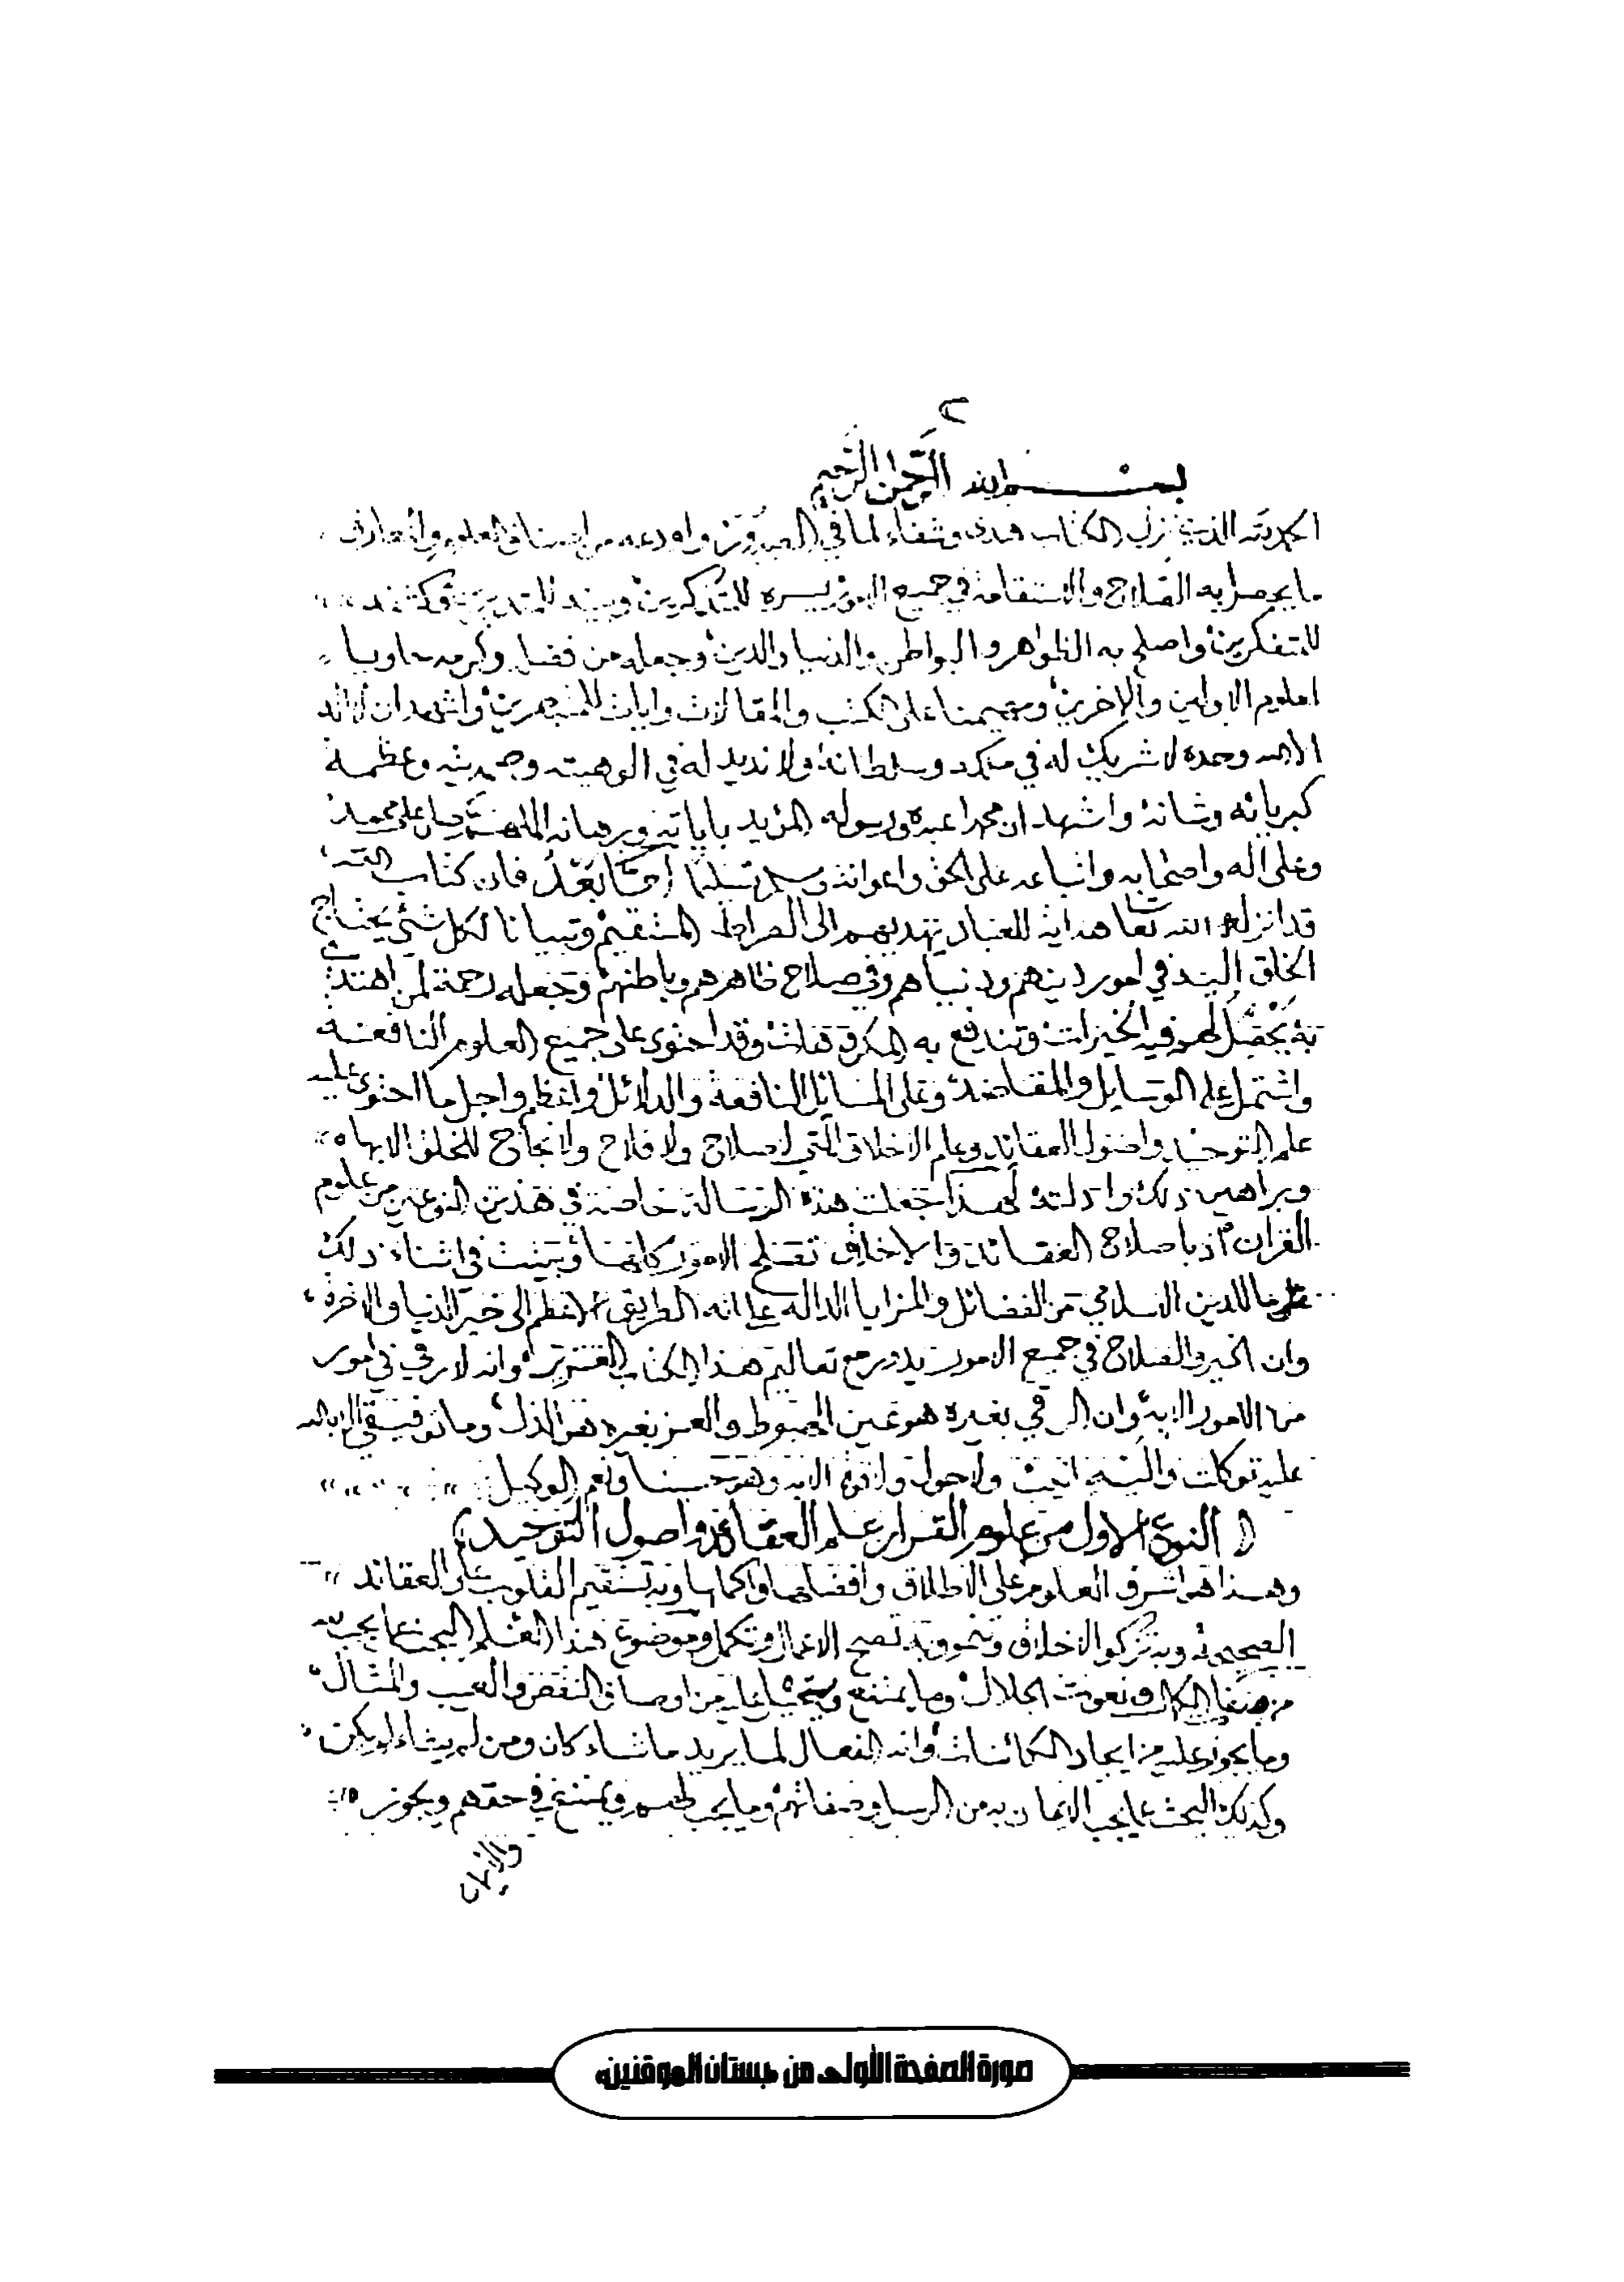 ٢
بسم الله الرحمن الرحيم
الحمد لله الذي نزل الكتاب هدى وشفاء لما في الصدور واودعه من اصناف العلوم والمعارف
ما يحصل به الفلاح والاستقامة في جميع الامور يسره للمتذكرين وبينه للمتدبرين وكشفه
للمتفكرين واصلح به الظواهر والبواطن والدنيا والدين وجعله من فضله وكرمه حاويا
لعلوم الاولين والاخرين ومهيمنا على الكتب والمقالات وايات للمتبصرين واشهد ان لا اله
الا الله وحده لا شريك له في ملكه وسلطانه ولا نديد له في الوهيته وصمديته وعظمة
كبريائه وشانه واشهد ان محمدا عبده ورسوله المؤيد باياته وبرهانه اللهم صل على محمد
وعلى آله واصحابه واتباعه على الحق واعوانه وسلم تسليما اما بعد فان كتاب الله
قد انزله الله تعا هداية للعباد يهديهم الى الصراط المستقيم وتبيانا لكل شئ يحتاج
الخلق اليه في امور دينهم ودنياهم وفي صلاح ظاهرهم وباطنهم وجعله رحمة لمن اهتدى
به يحصل لهم فيه الخيرات وتندفع به المكروهات وقد احتوى على جميع العلوم النافعة
واشتمل على الوسايل والمقاصد وعلى المسائل النافعة والدلائل واعظم واجل ما احتوى عليه
علم التوحيد واصول العقائد وعلم الاخلاق التي لا صلاح ولا فلاح ولا نجاح للخلق الا بها
وبراهين ذلك وادلته لهذا جعلت هذه الرسالة خاصة في هذين النوعين من علوم
القران اذ باصلاح العقائد والاخلاق تصلح الامور كلها وبينت في اثناء ذلك
ما للدين الاسلامي من الفضائل والمزايا الداله على انه الطريق الاعظم الى خير الدنيا والاخرة
وان الخير والصلاح في جميع الامور يدور مع تعاليم هذا الكتاب العزيز وانه لا رقي في امور
من الامور الا به وان الرقي بغيره هو عين الهبوط والعز بغيره هو الذل وما توفيقي الا بالله
عليه توكلت واليه انيب ولا حول ولا قوة الا به وهو حسبنا ونعم الوكيل
( النوع الاول من علوم القران علم العقائد واصول التوحيد )
وهذا هو اشرف العلوم على الاطلاق وافضلها واكملها وبه تستقيم القلوب على العقائد
الصحيحة وبه تزكوا الاخلاق وتنمو وبه تصح الاعمال وتكمل وموضوع هذا العلم البحث عما يجب لله
من صفات الكمال ونعوت الجلال وما يمتنع ويستحيل عليه من اوصاف النقص والعيب والمثال
وما يجوز عليه من ايجاد الكائنات وانه الفعال لما يريد ما شاء كان وما لم يشاء لم يكن
وكذلك البحث عما يجب الايمان به من الرسل وصفاتهم وما يجب لهم ويمتنع في حقهم ويجوز
والايمان
صورة الصفحة الأولى من «بستان الموقنين»